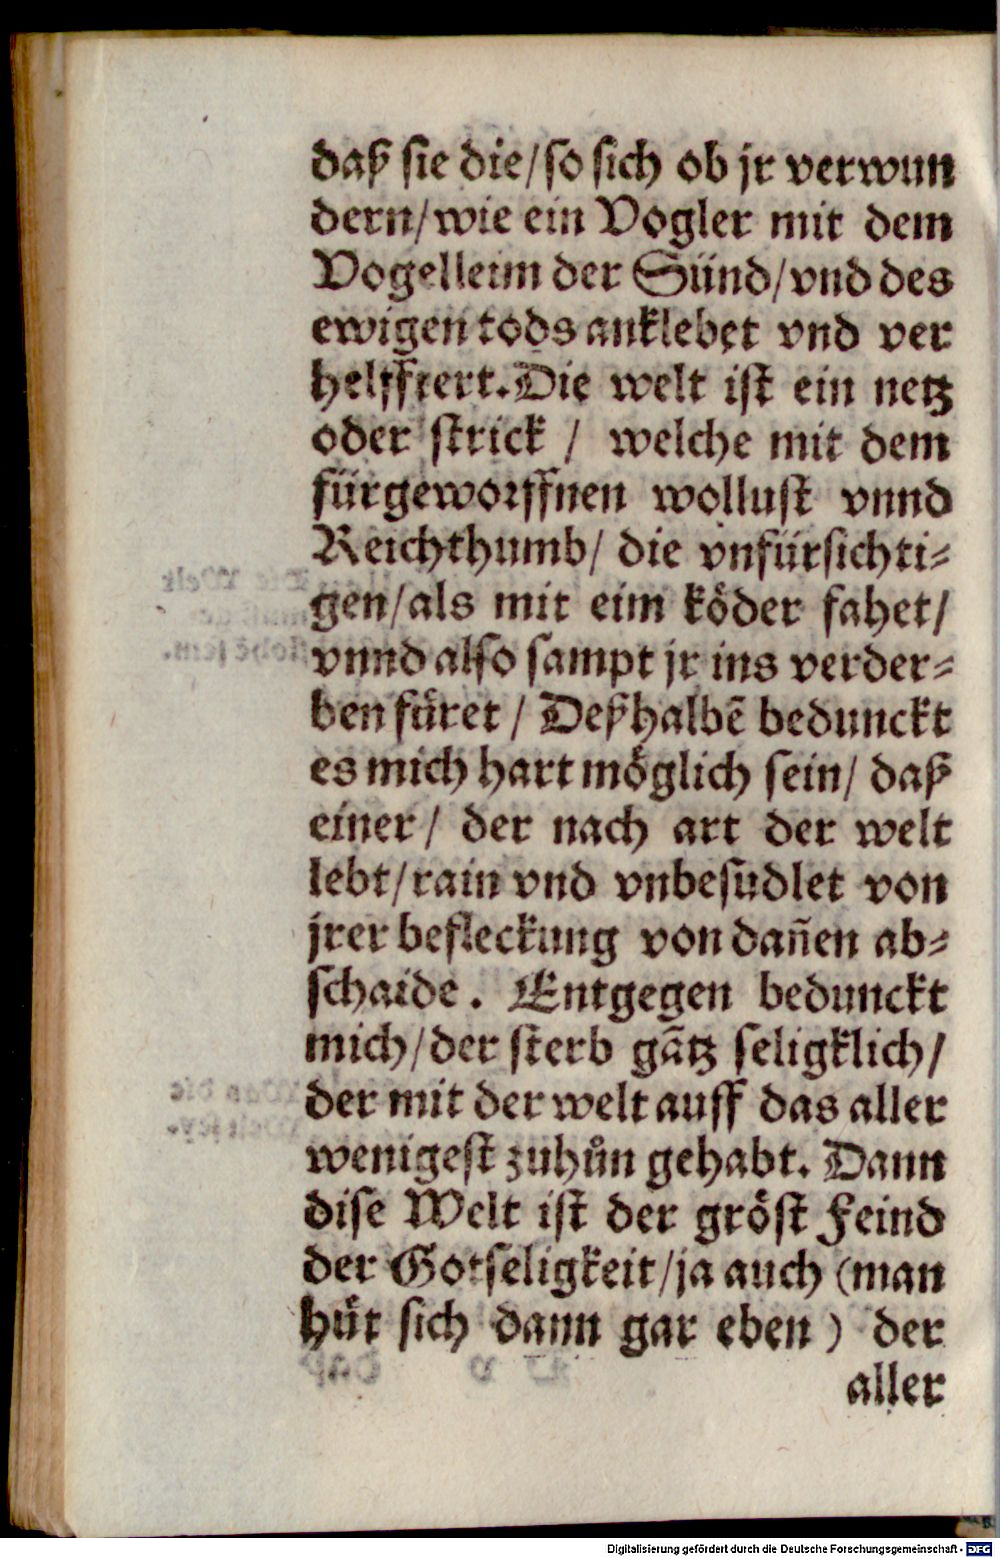 daß sie die/so sich ob jr verwun
dern/wie ein Vogler mit dem
Vogelleim der Sünd/vnd des
ewigen tods anklebet vnd ver
helfftert. Die welt ist ein netz
oder strick / welche mit dem
fürgeworffnen wollust vnnd
Reichthumb/ die vnfürsichti-
gen/als mit eim köder fahet/
vnnd also sampt jr ins verder-
ben füret / Deßhalbē bedunckt
es mich hart möglich sein/ daß
einer/ der nach art der welt
lebt/rain vnd vnbesudlet von
jrer befleckung von dañen ab-
schaide. Entgegen bedunckt
mich/der sterb gātz seligklich/
der mit der welt auff das aller
wenigest zuhůn gehabt. Dann
dise Welt ist der gröst Feind
der Gotseligkeit/ja auch (man
hüt sich dann gar eben) der
aller
Digitalisierung gefördert durch die Deutsche Forschungsgemeinschaft - DFG